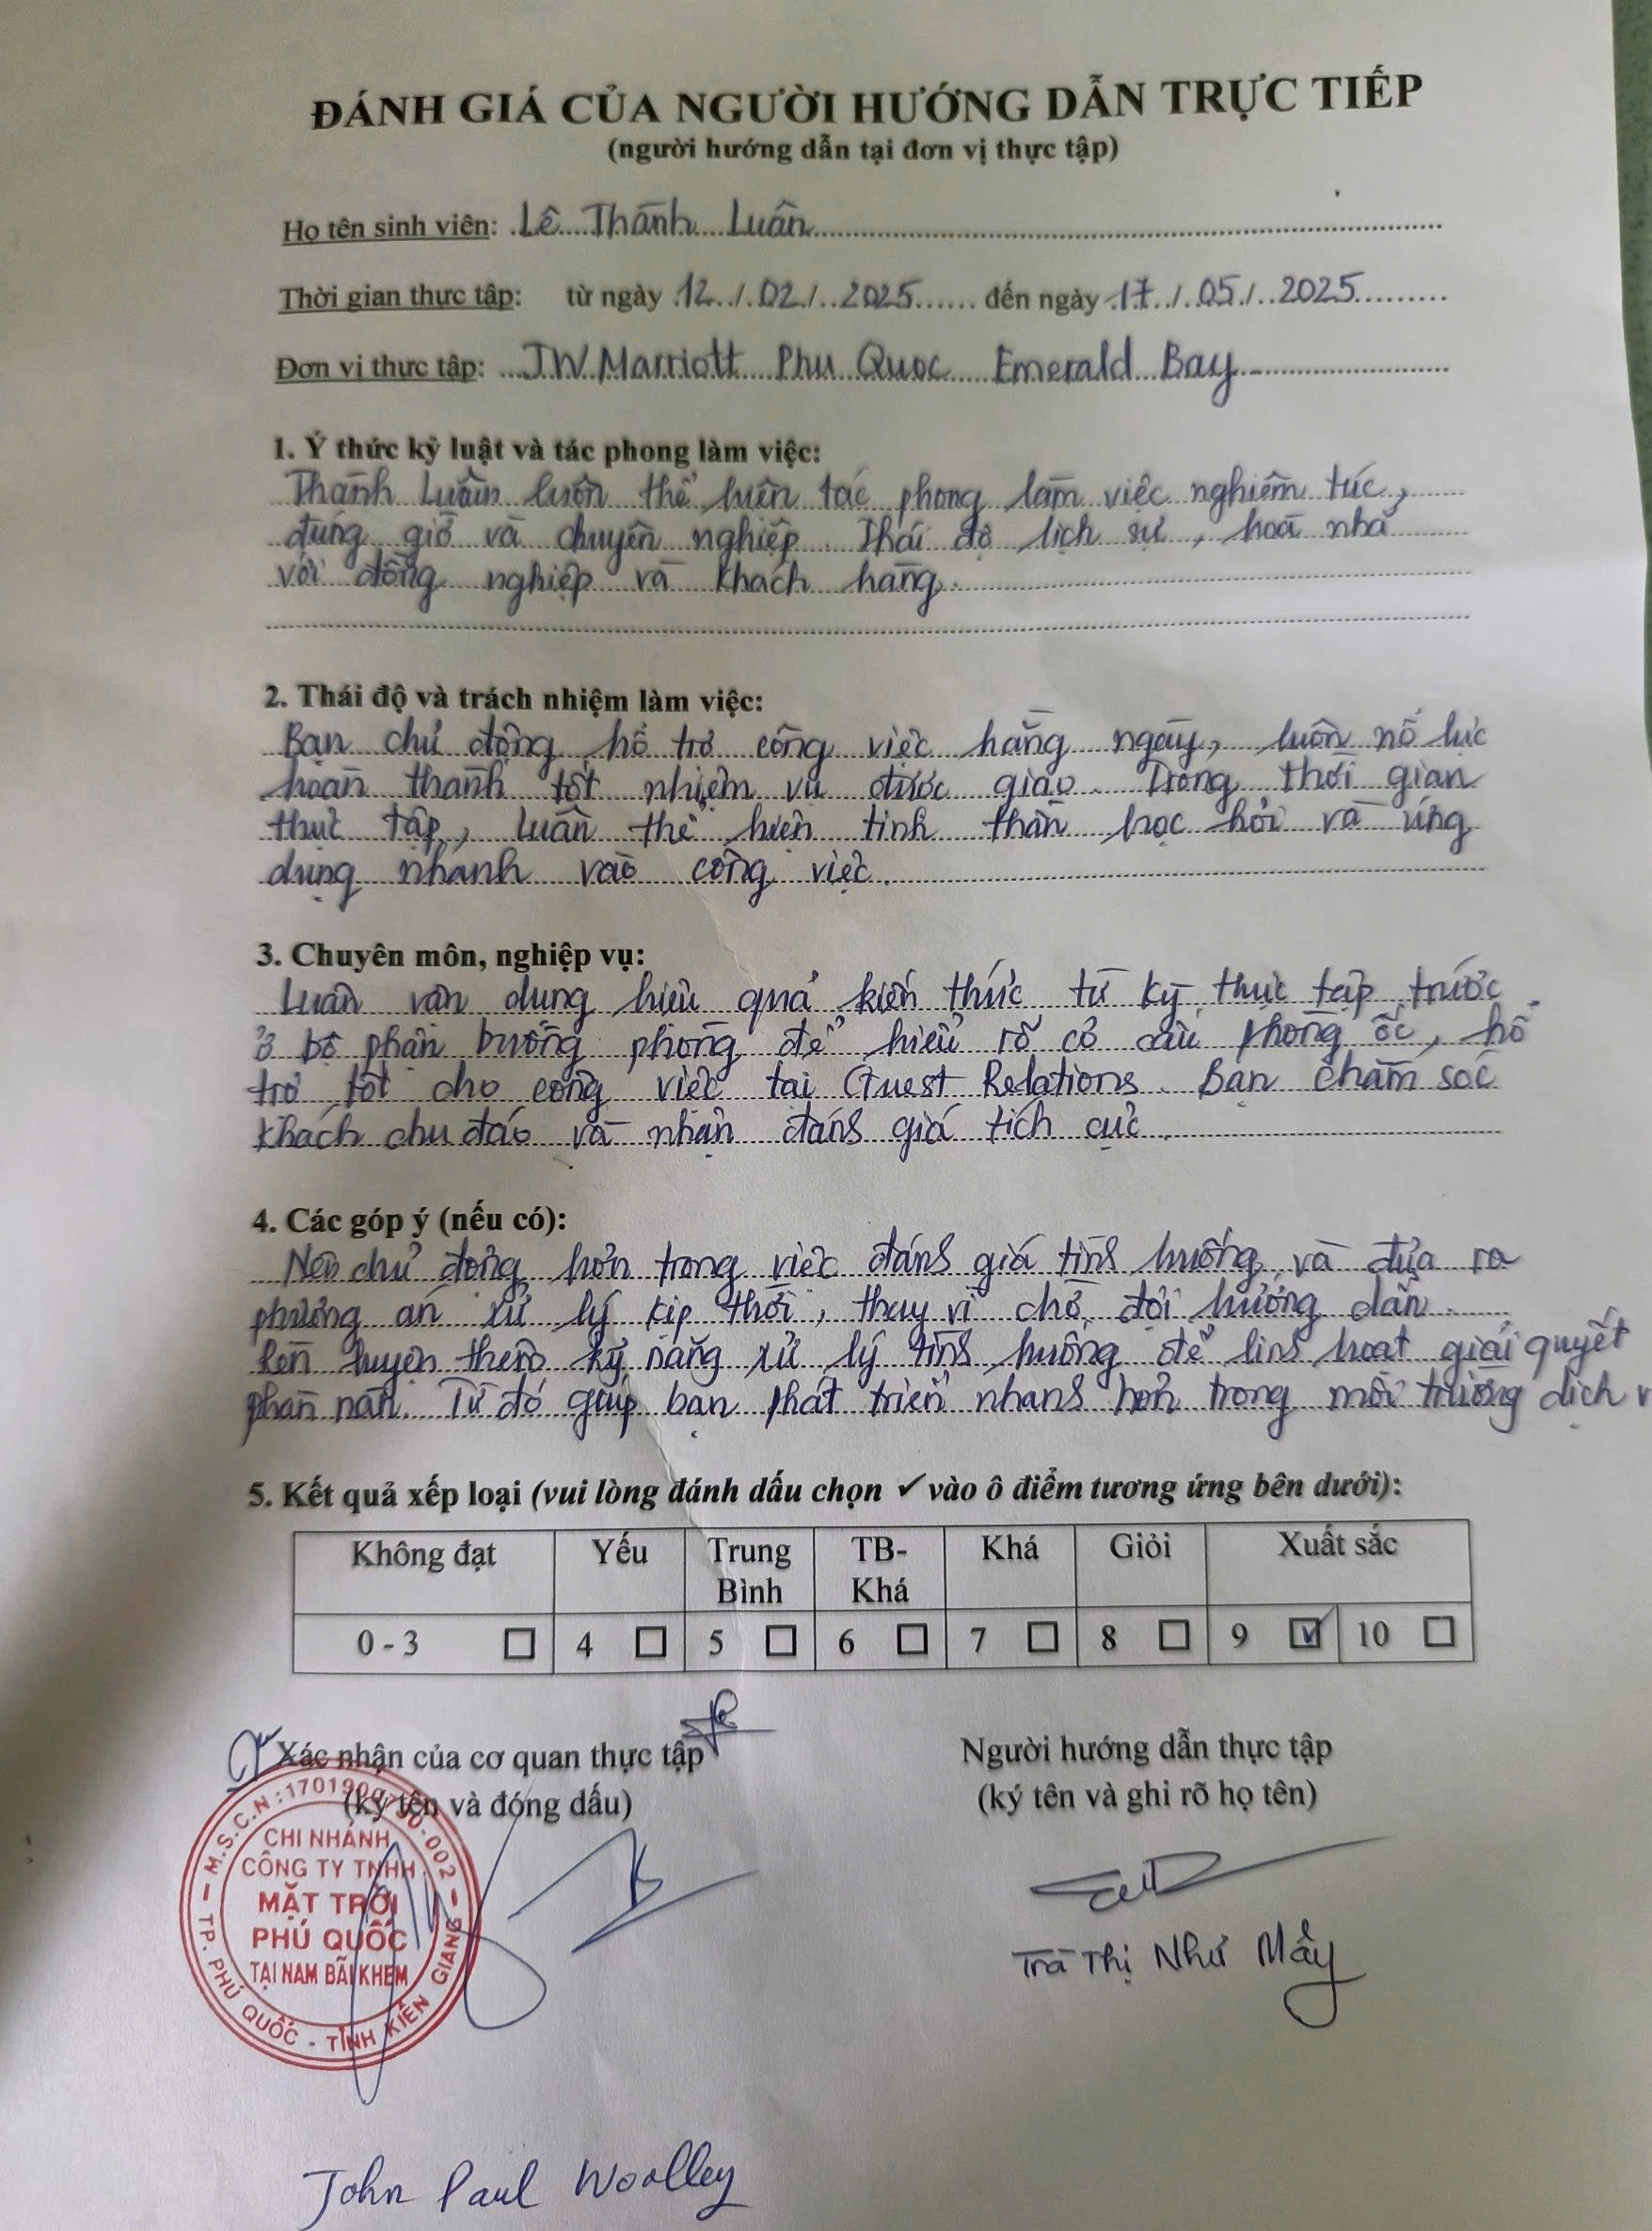 ĐÁNH GIÁ CỦA NGƯỜI HƯỚNG DẪN TRỰC TIẾP
(người hướng dẫn tại đơn vị thực tập)
Họ tên sinh viên: Lê Thành Luân
Thời gian thực tập: từ ngày 12/02/2025 đến ngày 17/05/2025
Đơn vị thực tập: JW Marriott Phu Quoc Emerald Bay
1. Ý thức kỷ luật và tác phong làm việc:
Thành Luân luôn thể hiện tác phong làm việc nghiêm túc,
đúng giờ và chuyên nghiệp. Thái độ lịch sự, hoà nhã
với đồng nghiệp và khách hàng.
2. Thái độ và trách nhiệm làm việc:
Bạn chủ động hỗ trợ công việc hằng ngày, luôn nỗ lực
hoàn thành tốt nhiệm vụ được giao. Trong thời gian
thực tập, Luân thể hiện tinh thần học hỏi và ứng
dụng nhanh vào công việc.
3. Chuyên môn, nghiệp vụ:
Luân vận dụng hiệu quả kiến thức từ kỳ thực tập trước
ở bộ phận buồng phòng để hiểu rõ cơ cấu phòng ốc, hỗ
trợ tốt cho công việc tại Guest Relations. Bạn chăm sóc
khách chu đáo và nhận đánh giá tích cực.
4. Các góp ý (nếu có):
Nên chủ động hơn trong việc đánh giá tình huống và đưa ra
phương án xử lý kịp thời, thay vì chờ đợi hướng dẫn.
Rèn luyện thêm kỹ năng xử lý tình huống để linh hoạt giải quyết
phàn nàn. Từ đó giúp bạn phát triển nhanh hơn trong môi trường dịch v
5. Kết quả xếp loại (vui lòng đánh dấu chọn ✓ vào ô điểm tương ứng bên dưới):
Không đạt Yếu Trung Bình TB-Khá Khá Giỏi Xuất sắc
0 - 3 ☐ 4 ☐ 5 ☐ 6 ☐ 7 ☐ 8 ☐ 9 ☑ 10 ☐
Xác nhận của cơ quan thực tập
(ký tên và đóng dấu)
Người hướng dẫn thực tập
(ký tên và ghi rõ họ tên)
CHI NHÁNH
CÔNG TY TNHH
MẶT TRỜI
PHÚ QUỐC
TẠI NAM BÃI KHEM
TP. PHÚ QUỐC - TỈNH KIÊN GIANG
Trà Thị Như Mây
John Paul Woolley